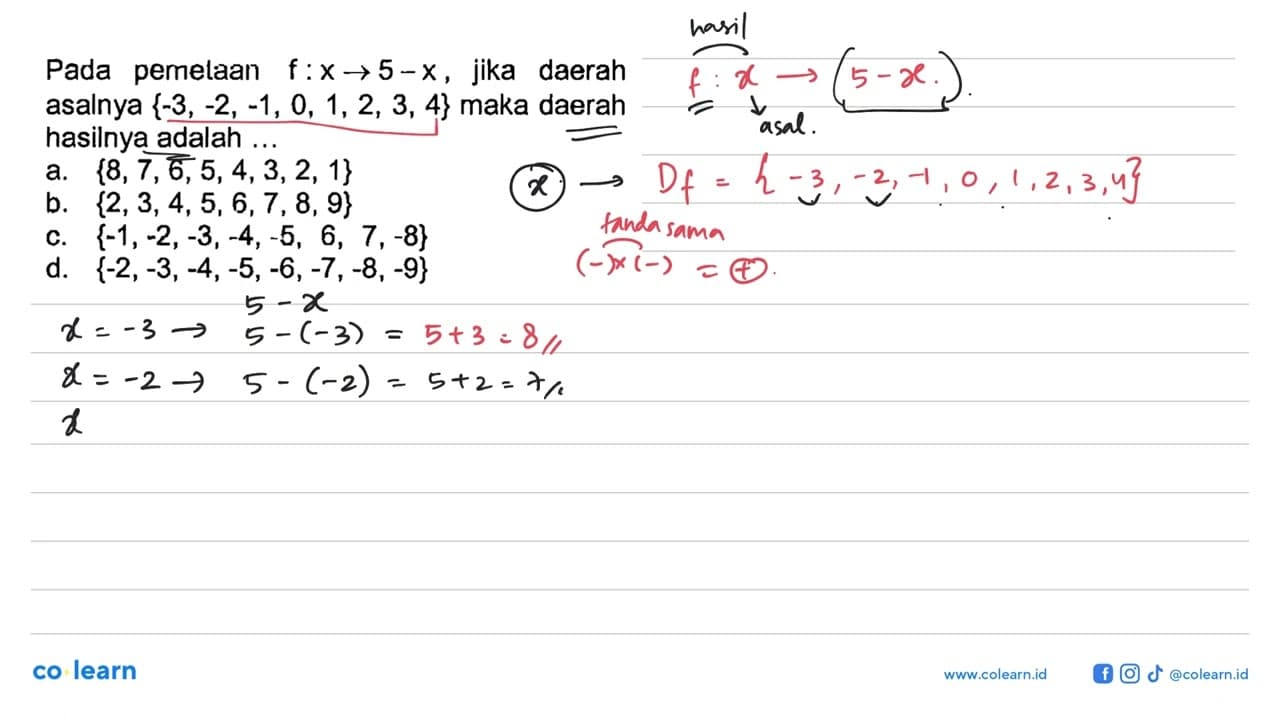 Pada pemetaan f : x → 5 – x, jika daerah
asalnya {-3, -2, -1, 0, 1, 2, 3, 4} maka daerah
hasilnya adalah ...
a. {8, 7, 6, 5, 4, 3, 2, 1}
b. {2, 3, 4, 5, 6, 7, 8, 9}
c. {-1, -2, -3, -4, -5, 6, 7, -8}
d. {-2, -3, -4, -5, -6, -7, -8, -9}
hasil
f : x → (5 - x.).
asal.
x → Df = { -3, -2, -1, 0, 1, 2, 3, 4}
tanda sama
(-)x(-) = +.
5 - x
x = -3 → 5 - (-3) = 5 + 3 = 8 //
x = -2 → 5 - (-2) = 5 + 2 = 7 //
x
co learn
www.colearn.id
@colearn.id